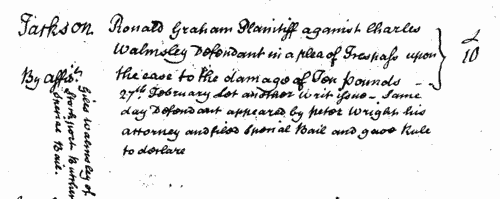 Jackson. Ronald Graham Plaintiff against Charles
Walmsley Defendant in a plea of Trespass upon
the case to the damage of Ten Pounds
£
10
By affit.
27th February Let another Writ issue - Same
day Defendant appeared by Peter Wright his
attorney and filed Special Bail and gave Rule
to declare
Giles Walmsley of
Stockport
Special Bail.